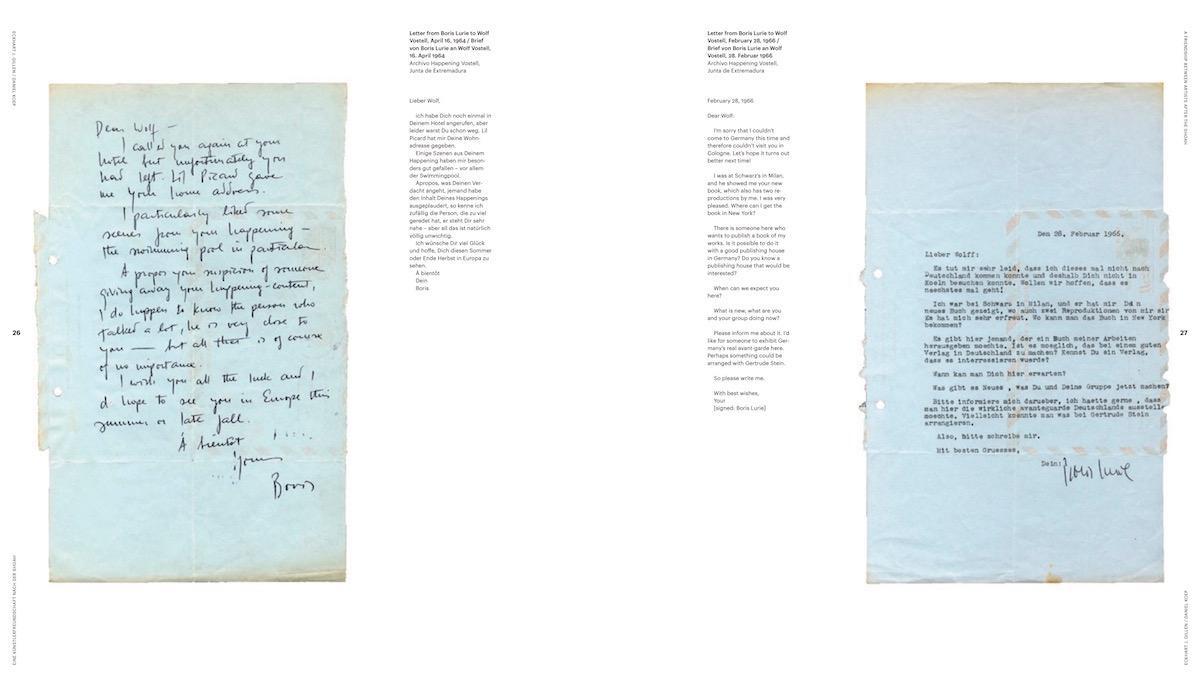 ECKHART J. GILLEN / DANIEL KOEP
26
EINE KÜNSTLERFREUNDSCHAFT NACH DER SHOAH
Dear Wolf —
I called you again at your
hotel but unfortunately you
had left. Lil Picard gave
me your home address.
I particularly liked some
scenes from your happening —
the swimming pool in particular.
À propos your suspicion of someone
giving away your happening-content,
I do happen to know the person who
talked a lot, he is very close to
you — but all that is of course
of no importance.
I wish you all the luck and I
d hope to see you in Europe this
summer or late fall.
À bientôt
Yours
Boris
Letter from Boris Lurie to Wolf
Vostell, April 16, 1964 / Brief
von Boris Lurie an Wolf Vostell,
16. April 1964
Archivo Happening Vostell,
Junta de Extremadura
Lieber Wolf,
ich habe Dich noch einmal in
Deinem Hotel angerufen, aber
leider warst Du schon weg. Lil
Picard hat mir Deine Wohn-
adresse gegeben.
Einige Szenen aus Deinem
Happening haben mir beson-
ders gut gefallen – vor allem
der Swimmingpool.
Apropos, was Deinen Ver-
dacht angeht, jemand habe
den Inhalt Deines Happenings
ausgeplaudert, so kenne ich
zufällig die Person, die zu viel
geredet hat, er steht Dir sehr
nahe – aber all das ist natürlich
völlig unwichtig.
Ich wünsche Dir viel Glück
und hoffe, Dich diesen Sommer
oder Ende Herbst in Europa zu
sehen.
À bientôt
Dein
Boris
Letter from Boris Lurie to Wolf
Vostell, February 28, 1966 /
Brief von Boris Lurie an Wolf
Vostell, 28. Februar 1966
Archivo Happening Vostell,
Junta de Extremadura
February 28, 1966
Dear Wolf:
I'm sorry that I couldn't
come to Germany this time and
therefore couldn't visit you in
Cologne. Let's hope it turns out
better next time!
I was at Schwarz's in Milan,
and he showed me your new
book, which also has two re-
productions by me. I was very
pleased. Where can I get the
book in New York?
There is someone here who
wants to publish a book of my
works. Is it possible to do it
with a good publishing house
in Germany? Do you know a
publishing house that would be
interested?
When can we expect you
here?
What is new, what are you
and your group doing now?
Please inform me about it. I'd
like for someone to exhibit Ger-
many's real avant-garde here.
Perhaps something could be
arranged with Gertrude Stein.
So please write me.
With best wishes,
Your
[signed: Boris Lurie]
Den 28. Februar 1966.
Lieber Wolff:
Es tut mir sehr leid, dass ich dieses mal nicht nach
Deutschland kommen konnte und deshalb Dich nicht in
Koeln besuchen konnte. Wollen wir hoffen, dass es
naechstes mal geht!
Ich war bei Schwarz in Milan, und er hat mir Dein
neues Buch gezeigt, wo auch zwei Reproductionen von mir sin
Es hat mich sehr erfreut. Wo kann man das Buch in New York
bekommen?
Es gibt hier jemand, der ein Buch meiner Arbeiten
herausgeben moechte. Ist es moeglich, das bei einem guten
Verlag in Deutschland zu machen? Kennst Du ein Verlag,
dass es interressieren wuerde?
Wann kann man Dich hier erwarten?
Was gibt es Neues , was Du und Deine Gruppe jetzt machen?
Bitte informiere mich darueber, ich haette gerne , dass
man hier die wirkliche avanteguarde Deutschlands ausstelle
moechte. Vielleicht koennte man was bei Gertrude Stein
arrangieren.
Also, bitte schreibe mir.
Mit besten Gruessen,
Dein:
Boris Lurie
A FRIENDSHIP BETWEEN ARTISTS AFTER THE SHOAH
27
ECKHART J. GILLEN / DANIEL KOEP